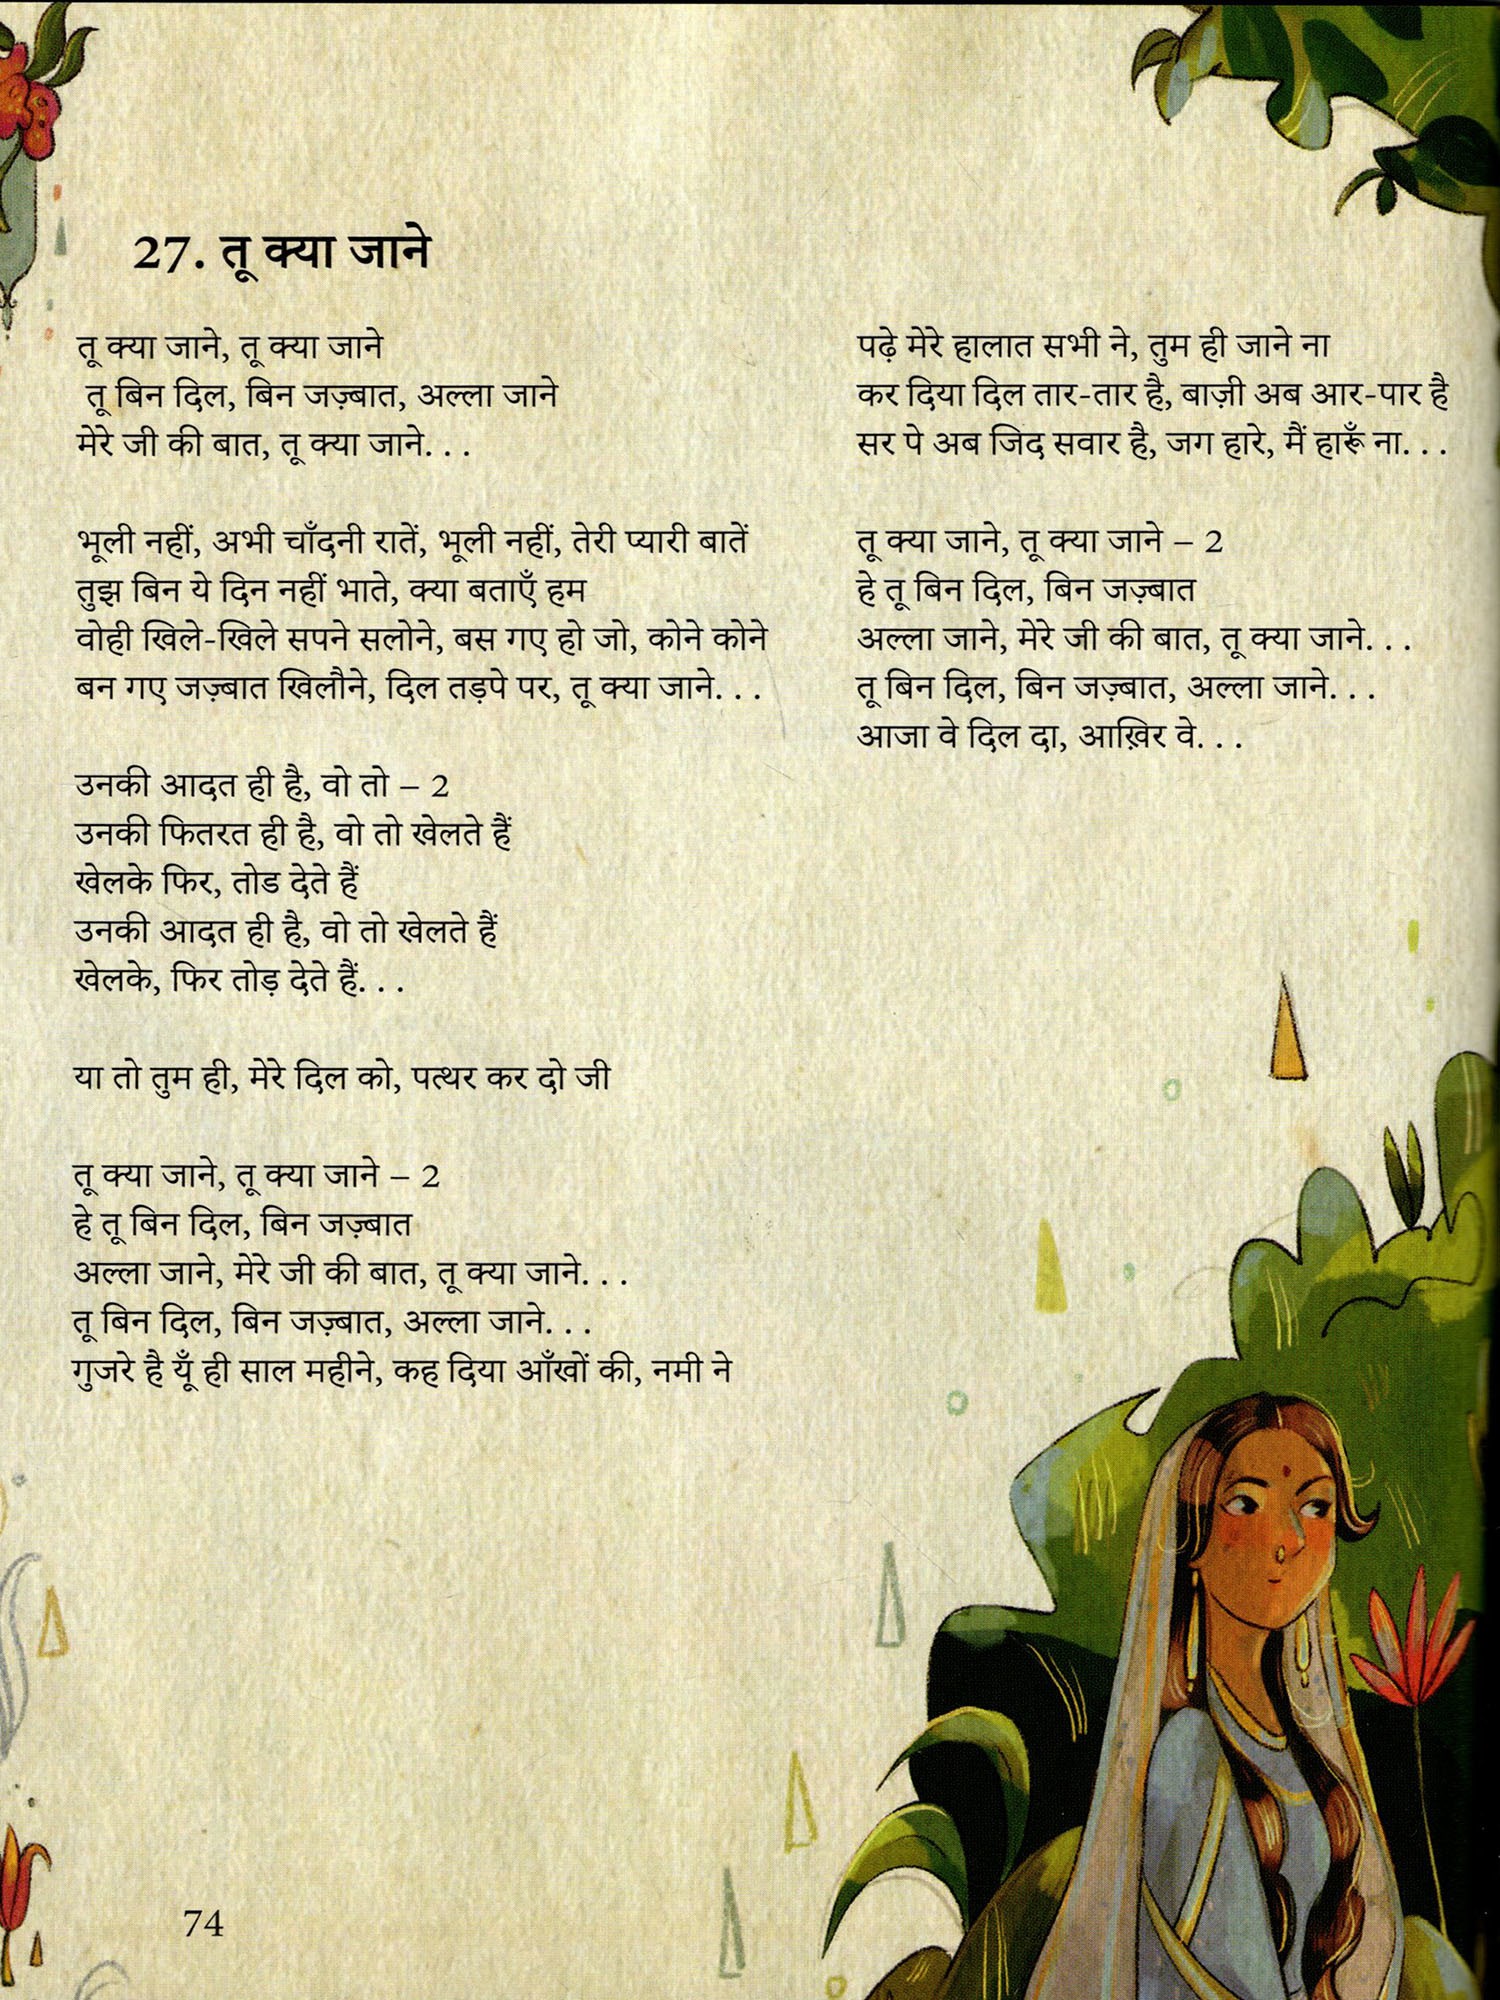 27. तू क्या जाने
तू क्या जाने, तू क्या जाने
तू बिन दिल, बिन जज़्बात, अल्ला जाने
मेरे जी की बात, तू क्या जाने. . .
भूली नहीं, अभी चाँदनी रातें, भूली नहीं, तेरी प्यारी बातें
तुझ बिन ये दिन नहीं भाते, क्या बताएँ हम
वोही खिले-खिले सपने सलोने, बस गए हो जो, कोने कोने
बन गए जज़्बात खिलौने, दिल तड़पे पर, तू क्या जाने. . .
उनकी आदत ही है, वो तो – 2
उनकी फितरत ही है, वो तो खेलते हैं
खेलके फिर, तोड देते हैं
उनकी आदत ही है, वो तो खेलते हैं
खेलके, फिर तोड़ देते हैं. . .
या तो तुम ही, मेरे दिल को, पत्थर कर दो जी
तू क्या जाने, तू क्या जाने – 2
हे तू बिन दिल, बिन जज़्बात
अल्ला जाने, मेरे जी की बात, तू क्या जाने. . .
तू बिन दिल, बिन जज़्बात, अल्ला जाने. . .
गुजरे है यूँ ही साल महीने, कह दिया आँखों की, नमी ने
पढ़े मेरे हालात सभी ने, तुम ही जाने ना
कर दिया दिल तार-तार है, बाज़ी अब आर-पार है
सर पे अब जिद सवार है, जग हारे, मैं हारूँ ना. . .
तू क्या जाने, तू क्या जाने – 2
हे तू बिन दिल, बिन जज़्बात
अल्ला जाने, मेरे जी की बात, तू क्या जाने. . .
तू बिन दिल, बिन जज़्बात, अल्ला जाने. . .
आजा वे दिल दा, आख़िर वे. . .
74